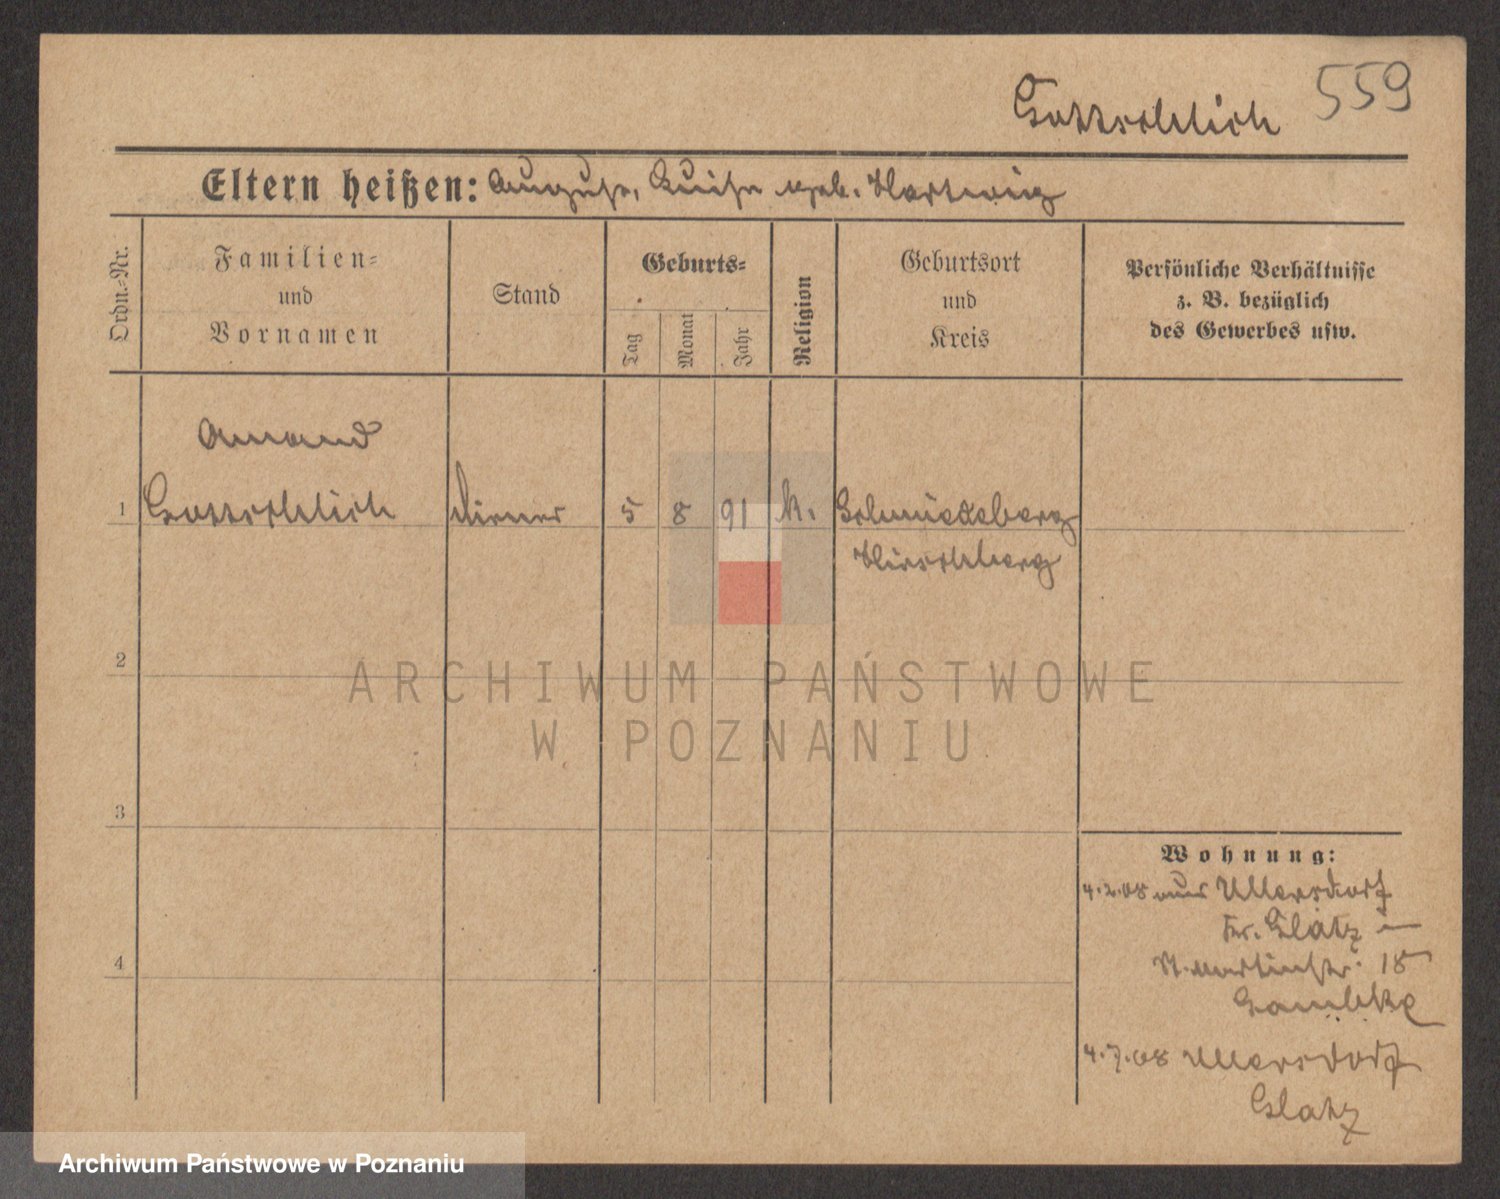 Gottschlich 559
Eltern heißen: August, Luise geb. Hartwig
Ordn.-Nr.
Familien-
und
Vornamen
Stand
Geburts-
Tag
Monat
Jahr
Religion
Geburtsort
und
Kreis
Persönliche Verhältnisse
z. B. bezüglich
des Gewerbes usw.
Amand
1 Gottschlich Diener 5 8 91 k. Schmiedeberg
Hirschberg
2
3
4
Wohnung:
4.2.08 aus Ullersdorf
Kr. Glatz
St. Martinstr. 18
4.7.08 Ullersdorf
Glatz
ARCHIWUM PAŃSTWOWE
W POZNANIU
Archiwum Państwowe w Poznaniu